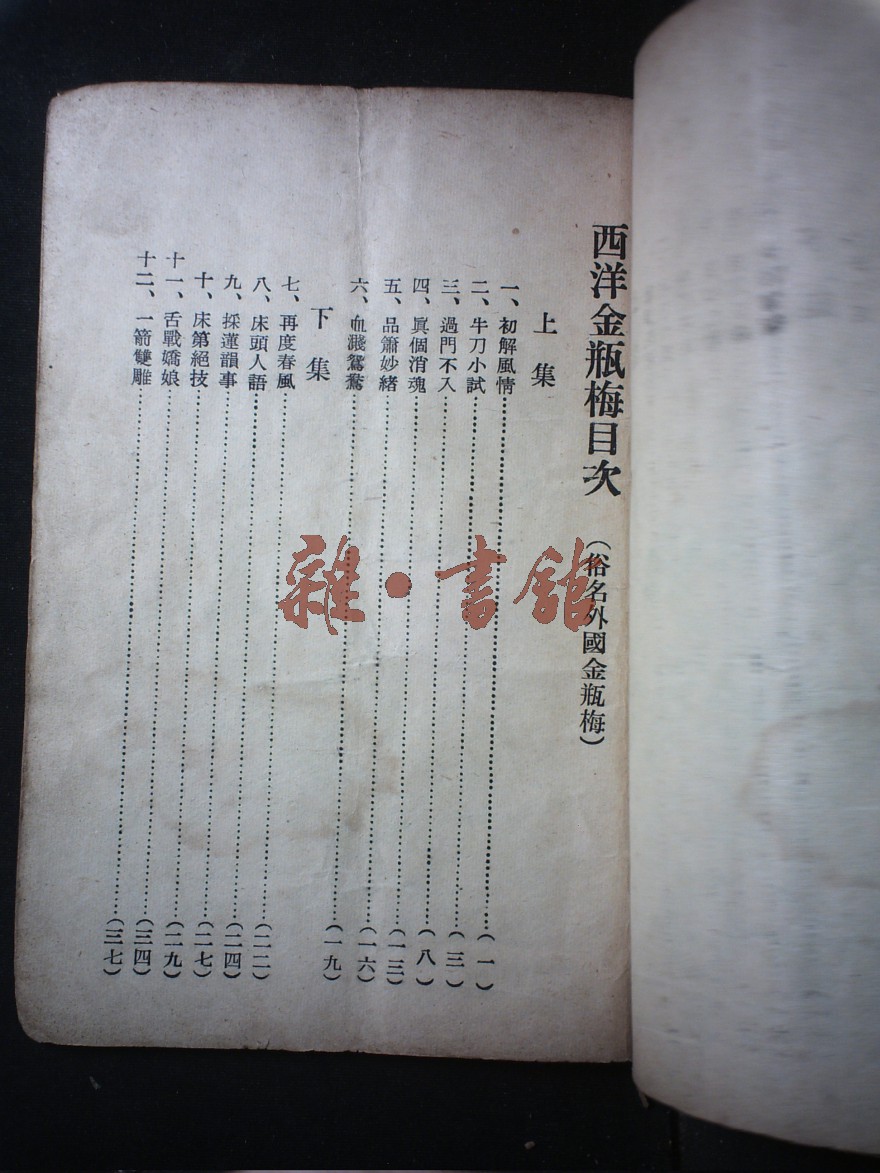 西洋金瓶梅目次（俗名外國金瓶梅）
上集
一、初解風情……（一）
二、牛刀小試……（三）
三、過門不入……（八）
四、眞個消魂……（一三）
五、品簫妙緒……（一六）
六、血濺鴛鴦……（一九）
下集
七、再度春風……（二二）
八、床頭人語……（二四）
九、採蓮韻事……（二七）
十、床第絕技……（二九）
十一、舌戰嬌娘……（三四）
十二、一箭雙雕……（三七）
雜·書館